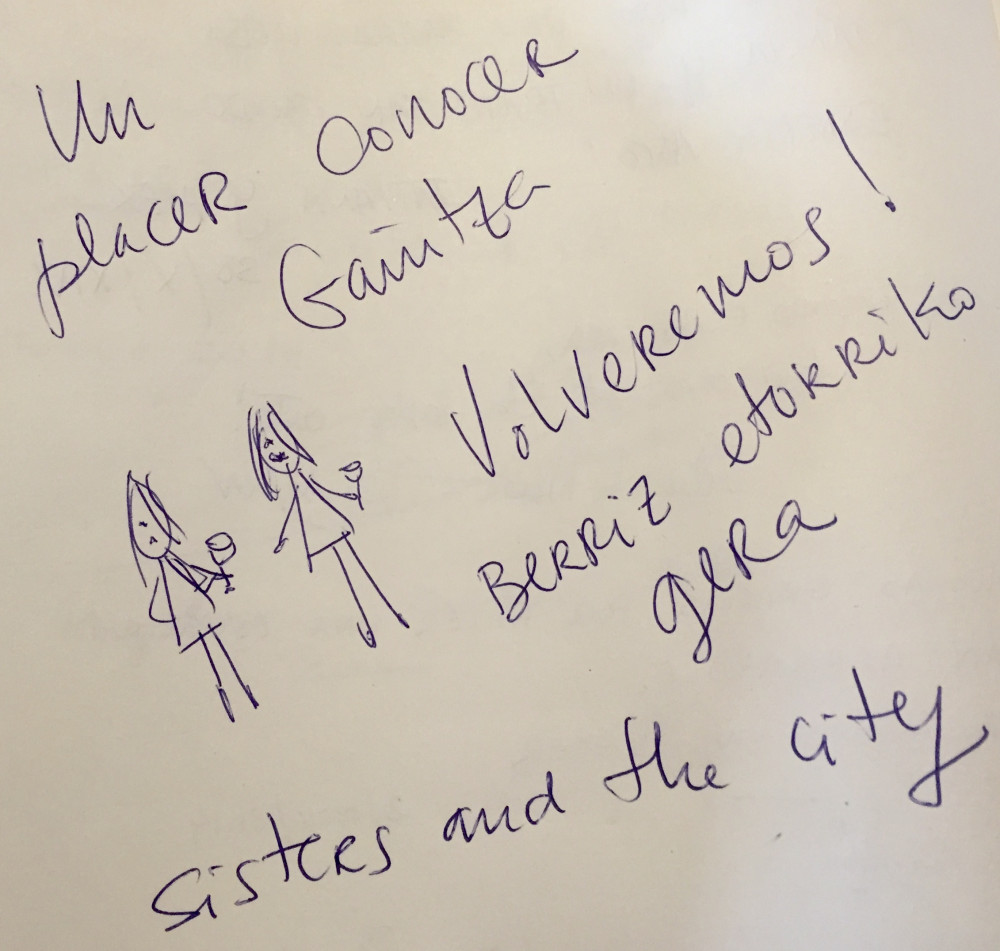 Un
placer conocer
Gaintza
Volveremos!
Berriz etorriko
gera
sisters and the city